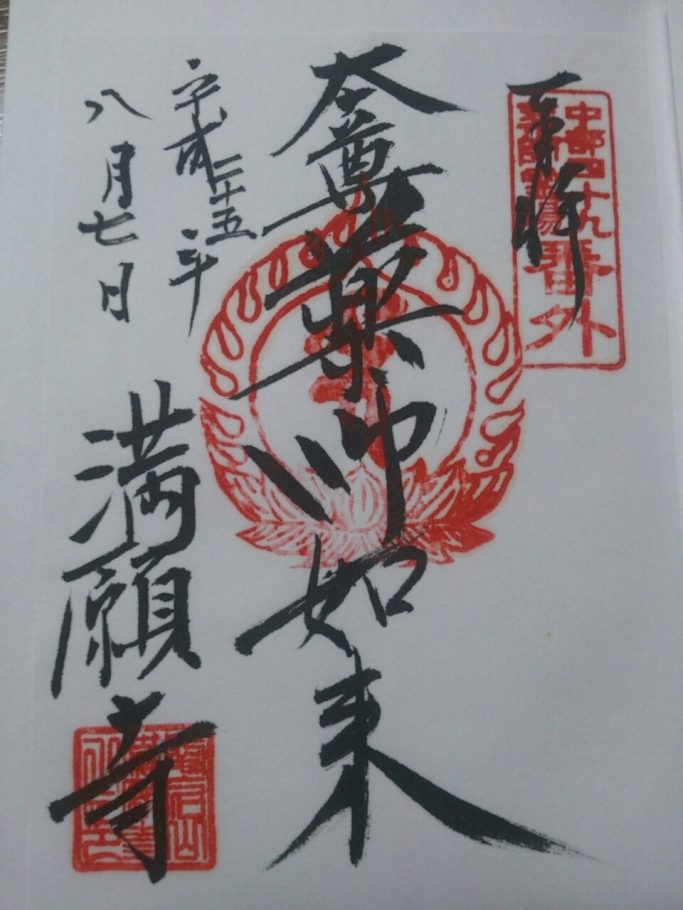 奉拝
中部四十九
薬師霊場
番外
本尊薬師如来
平成二十五年
八月七日
満願寺